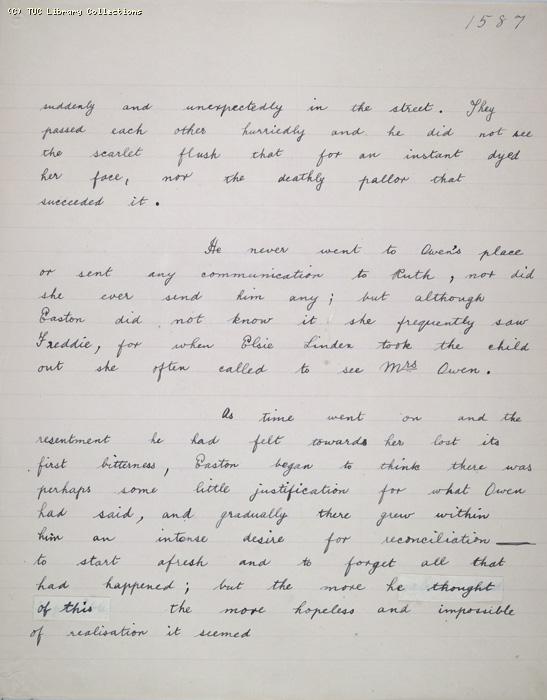 (C) TUC Library Collections
1587
suddenly and unexpectedly in the street. They
passed each other hurriedly and he did not see
the scarlet flush that for an instant dyed
her face, nor the deathly pallor that
succeeded it.
He never went to Owen's place
or sent any communication to Ruth, nor did
she ever send him any; but although
Easton did not know it she frequently saw
Freddie, for when Elsie Linden took the child
out she often called to see Mrs Owen.
As time went on and the
resentment he had felt towards her lost its
first bitterness, Easton began to think there was
perhaps some little justification for what Owen
had said, and gradually there grew within
him an intense desire for reconciliation —
to start afresh and to forget all that
had happened; but the more he thought
of this the more hopeless and impossible
of realisation it seemed